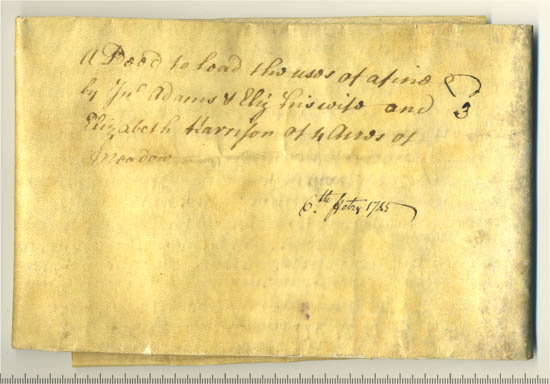 A Deed to lead the uses of a fine
by Jno Adams & Eliz his wife and
Elizabeth Harrison of 4 Acres of
Meadow
3
6.th 1725